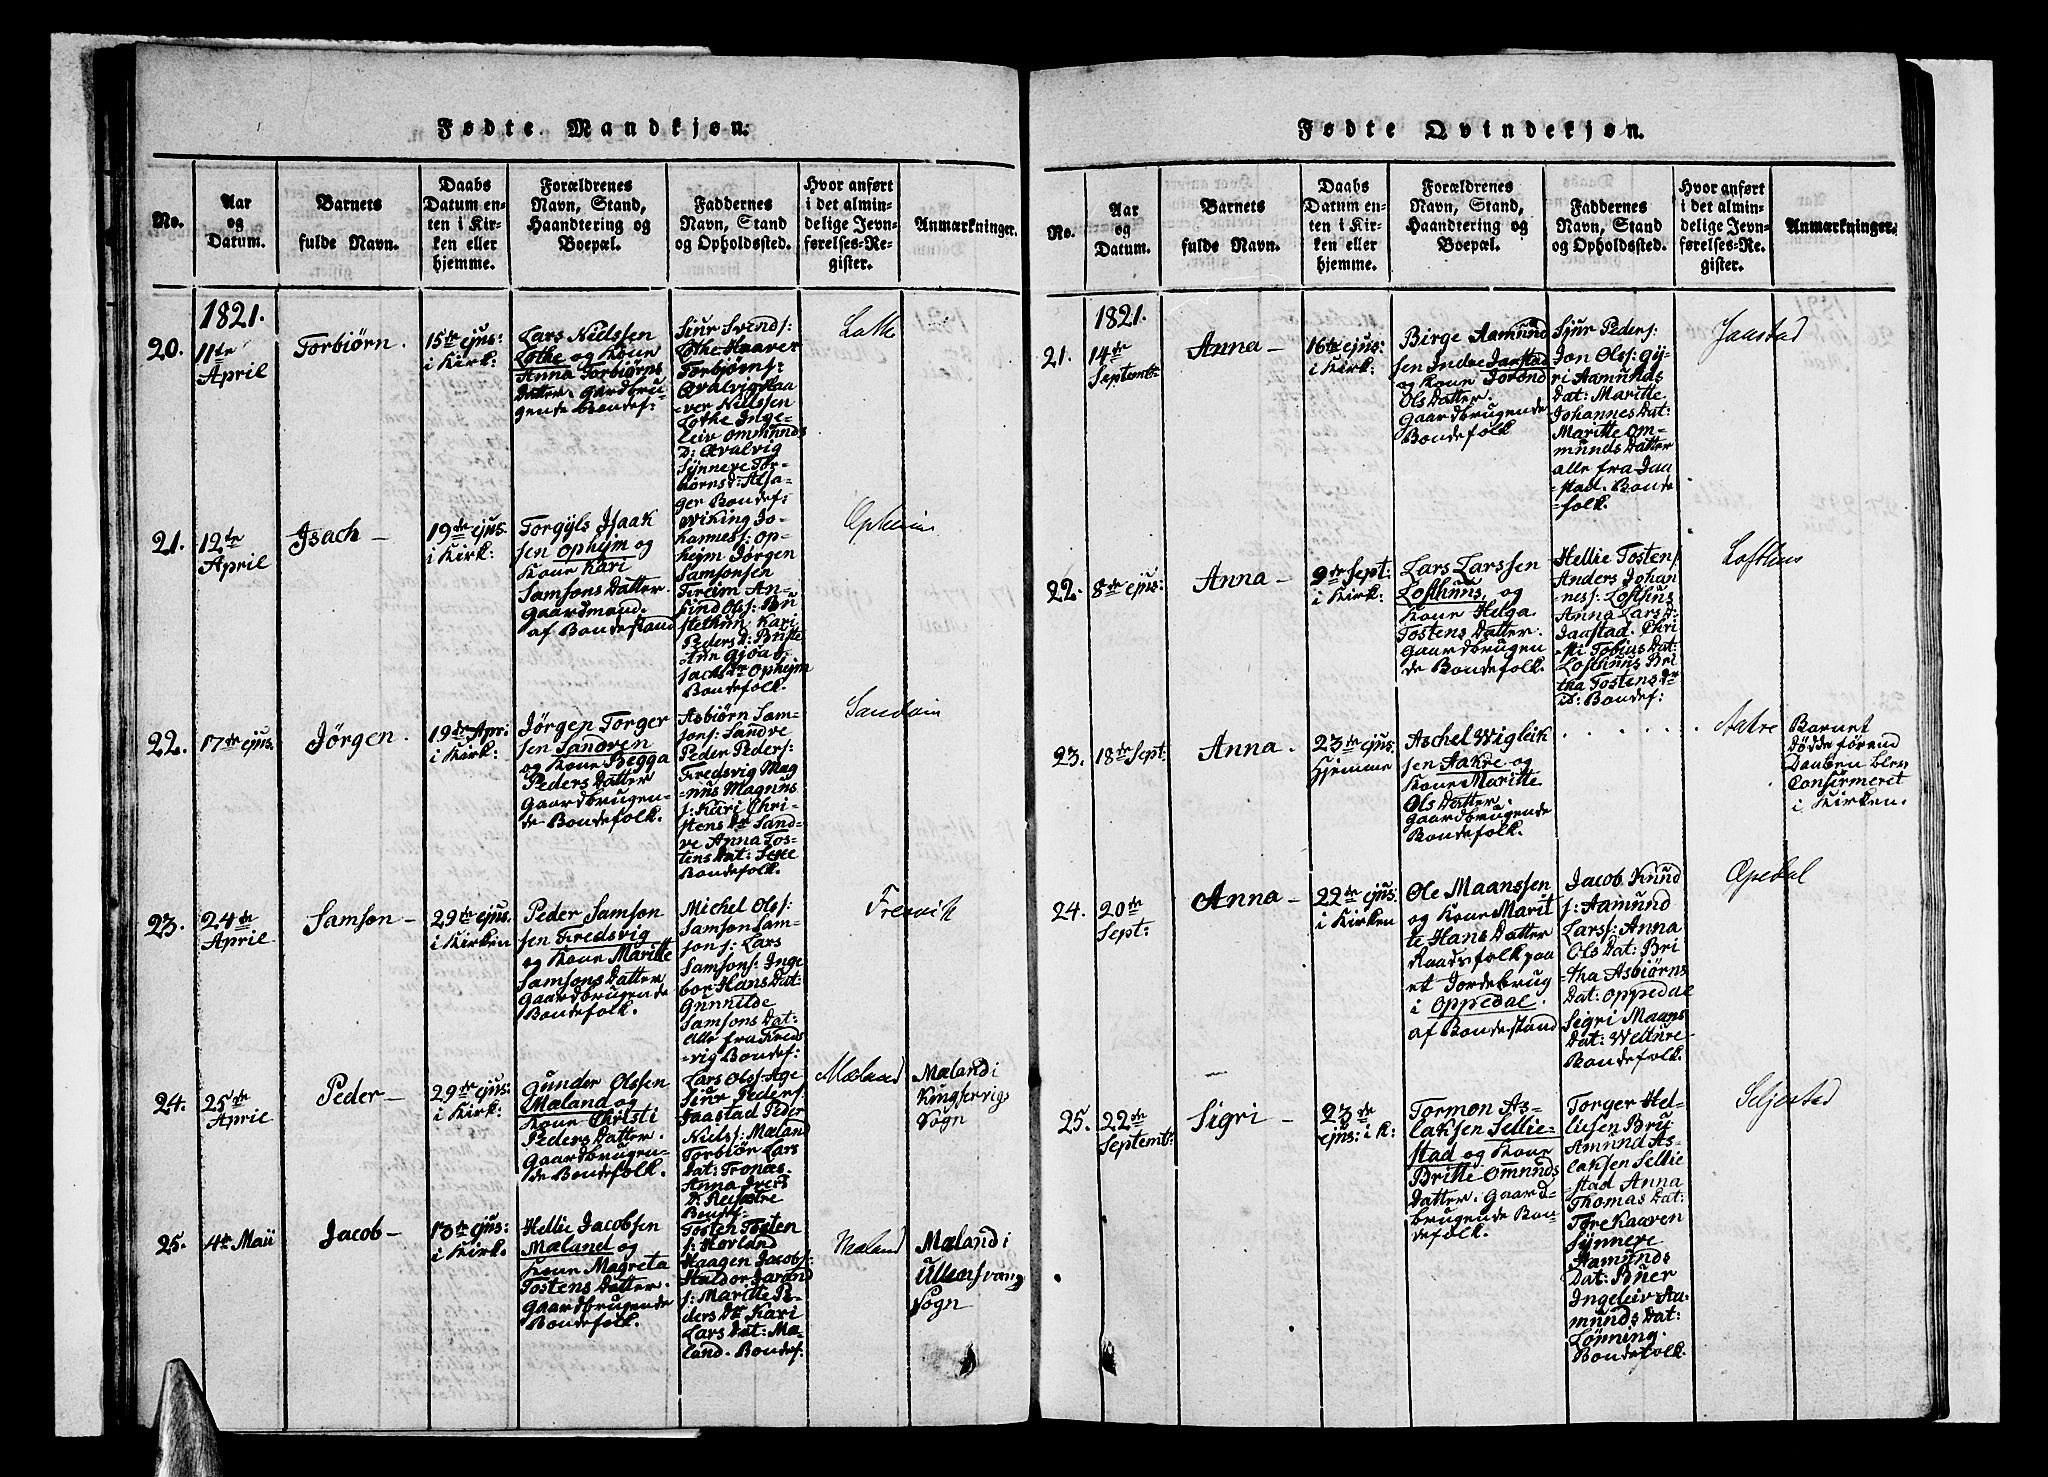 Fødte Mandkjøn.
No.
Aar
og
Datum.
Barnets
fulde Navn.
Daabs
Datum en-
ten i Kir-
ken eller
hjemme.
Forældrenes
Navn, Stand,
Haandtering og
Boepæl.
Faddernes
Navn, Stand
og Opholdssted.
Hvor anført
i det almin-
delige Jevn-
førelses-Re-
gister.
Anmærkninger.
1821.
20.
11te
April
Torbiörn.
15te ejus:
i Kirk:
Lars Nielssen
Lothe og Kone
Anna Torbiörns
Datter. Gaardbru-
gende Bondef:
Siur Svends:
Lothe Haaver
Torbjörns:
Qvalvig Haa
-ver Nielssen
Lothe Inge-
leiv Ommunds
D: Qvalvig
Synnere Tor-
biörnsd: Alsa-
ger Bondef:
Lothe
21.
12te
April
Isach –
19de ejus.
i Kirk:
Torgyls Isaak
sen Opheim og
Kone Kari
Samsons Datter.
Gaardmand.
af Bondestand
Wiking Jo-
hanness: Op-
heim Jörgen
Samsonsen
Freim An-
find Olss: Bu
stethun Kari
Peders D:
Opheim
Bondefolk.
Opheim
22.
17de ejus.
Jörgen.
19de Apri
i Kirk:
Jörgen Torger
sen Sandven
og Kone Begga
Peders Datter
Gaardbrugen-
de Bondefolk.
Asbiörn Sam-
sons: Sandve
Peder Peders:
Fredsvig Mag
-nus Magnus
s: Kari Chri-
stens Dr Sand-
ve Anna Tos-
tens Dat: Sexe
Bondefolk.
Sandven
23.
24de
April
Samson –
29de ejus.
i Kirken
Peder Samson
sen Fredsvig
og Kone Maritte
Samsons Datter
Gaardbrugende
Bondefolk.
Michel Olss:
Samson Sam-
sons: Lars
Samsons: Inge
bor Hans Dat:
Gunnilde
Samsons Dat:
Alle fra Freds
-vig Bondef:
Fresvik
24.
25de
April
Peder –
29de ejus:
i Kirk:
Gunder Olssen
Mæland og
Kone Christi
Peders Datter.
Gaardbrugen-
de Bondefolk.
Lars Olss: Age
Siur Peders:
Jaastad Peder
Niels: Mæland
Torbiör Lars
Dat: Tronæs.
Anna Ivers
D: Reisætre
Bondef:
Mæland
Mæland i
Kingservigs
Sogn
25.
4de Maii
Jacob –
13de ejus:
i Kirk.
Hellie Jacobsen
Mæland og
Kone Magreta
Tostens Datter.
Gaardbrugende
Bondefolk.
Tosten Tosten
s: Hovland
Haagen Jacobs:
Haldor Jarand
s: Maritte Pe-
ders Dtr Kari
Lars Dat: Mæ-
land. Bondef:
Mæland
Mæland i
Ullensvang
Sogn
Fødte Qvindekjøn.
No.
Aar
og
Datum.
Barnets
fulde Navn.
Daabs
Datum en-
ten i Kir-
ken eller
hjemme.
Forældrenes
Navn, Stand,
Haandtering og
Boepæl.
Faddernes
Navn, Stand
og Opholdssted.
Hvor anført
i det almin-
delige Jevn-
førelses-Re-
gister.
Anmærkninger.
1821.
21.
14de
Septemt:
Anna –
16de ejus:
i Kirk:
Birge Aamund
sen Indre Jaastad
og Kone Torond
Ols Datter.
Gaardbrugende
Bondefolk
Sjur Peders:
Jon Olss: Gy-
ri Aamunds
Dat: Maritte
Johannes Dat:
Maritte Om-
munds Datter
alle fra Jaa
-stad. Bonde
folk.
Jaastad
22.
8de ejus:
Anna –
9de Sept:
i Kirk:
Lars Larssen
Lofthuus, og
Kone Helga
Tostens Datter.
Gaardbrugen
de Bondefolk.
Hellie Tostens
Anders Johan
ness: Lofthus
Anna Lars D:
Jaastad. Chri
-sti Tobias Dat:
Lofthuus Bri
tha Tostens
D: Bondef:
Lofthus
23.
18de Sept:
Anna.
23de ejus:
Hjemme
Aschel Wigleik
sen Aakre og
Kone Maritte
Ols Datter.
Gaardbrugende
Bondefolk.
. . . . . . .
Aakre
Barnet
dödde förend
Daaben blev
Confirmeret
i Kirken.
24.
20de
Sept:
Anna –
22de ejus:
i Kirken
Ole Maanssen
og Kone Marit
te Hans Datter
Raadsfolk paa
et Jordebrug
i Oppedal.
af Bondestand
Jacob Knud
s: Aamund
Larss: Anna
Ols Dat: Bri
-tha Asbiörns
Dat: Oppedal
Sigri Maans
Dat: Welture
Bondefolk.
Opedal
25.
22de
Septemt:
Sigri –
23de
ejus: i K:
Tormon As-
laksen Sellie-
stad og Kone
Britte Omunds
Datter. Gaard-
brugende Bon-
defolk.
Torger Hel-
liesen Bru
Amund As-
laksen Sellie
-stad Anna
Thomas Dat:
Tore Kaaren
Synnere
Aamunds
Dat: Buer
Ingeleiv Aa-
munds Dat:
Lönning.
Bondefolk.
Seljestad